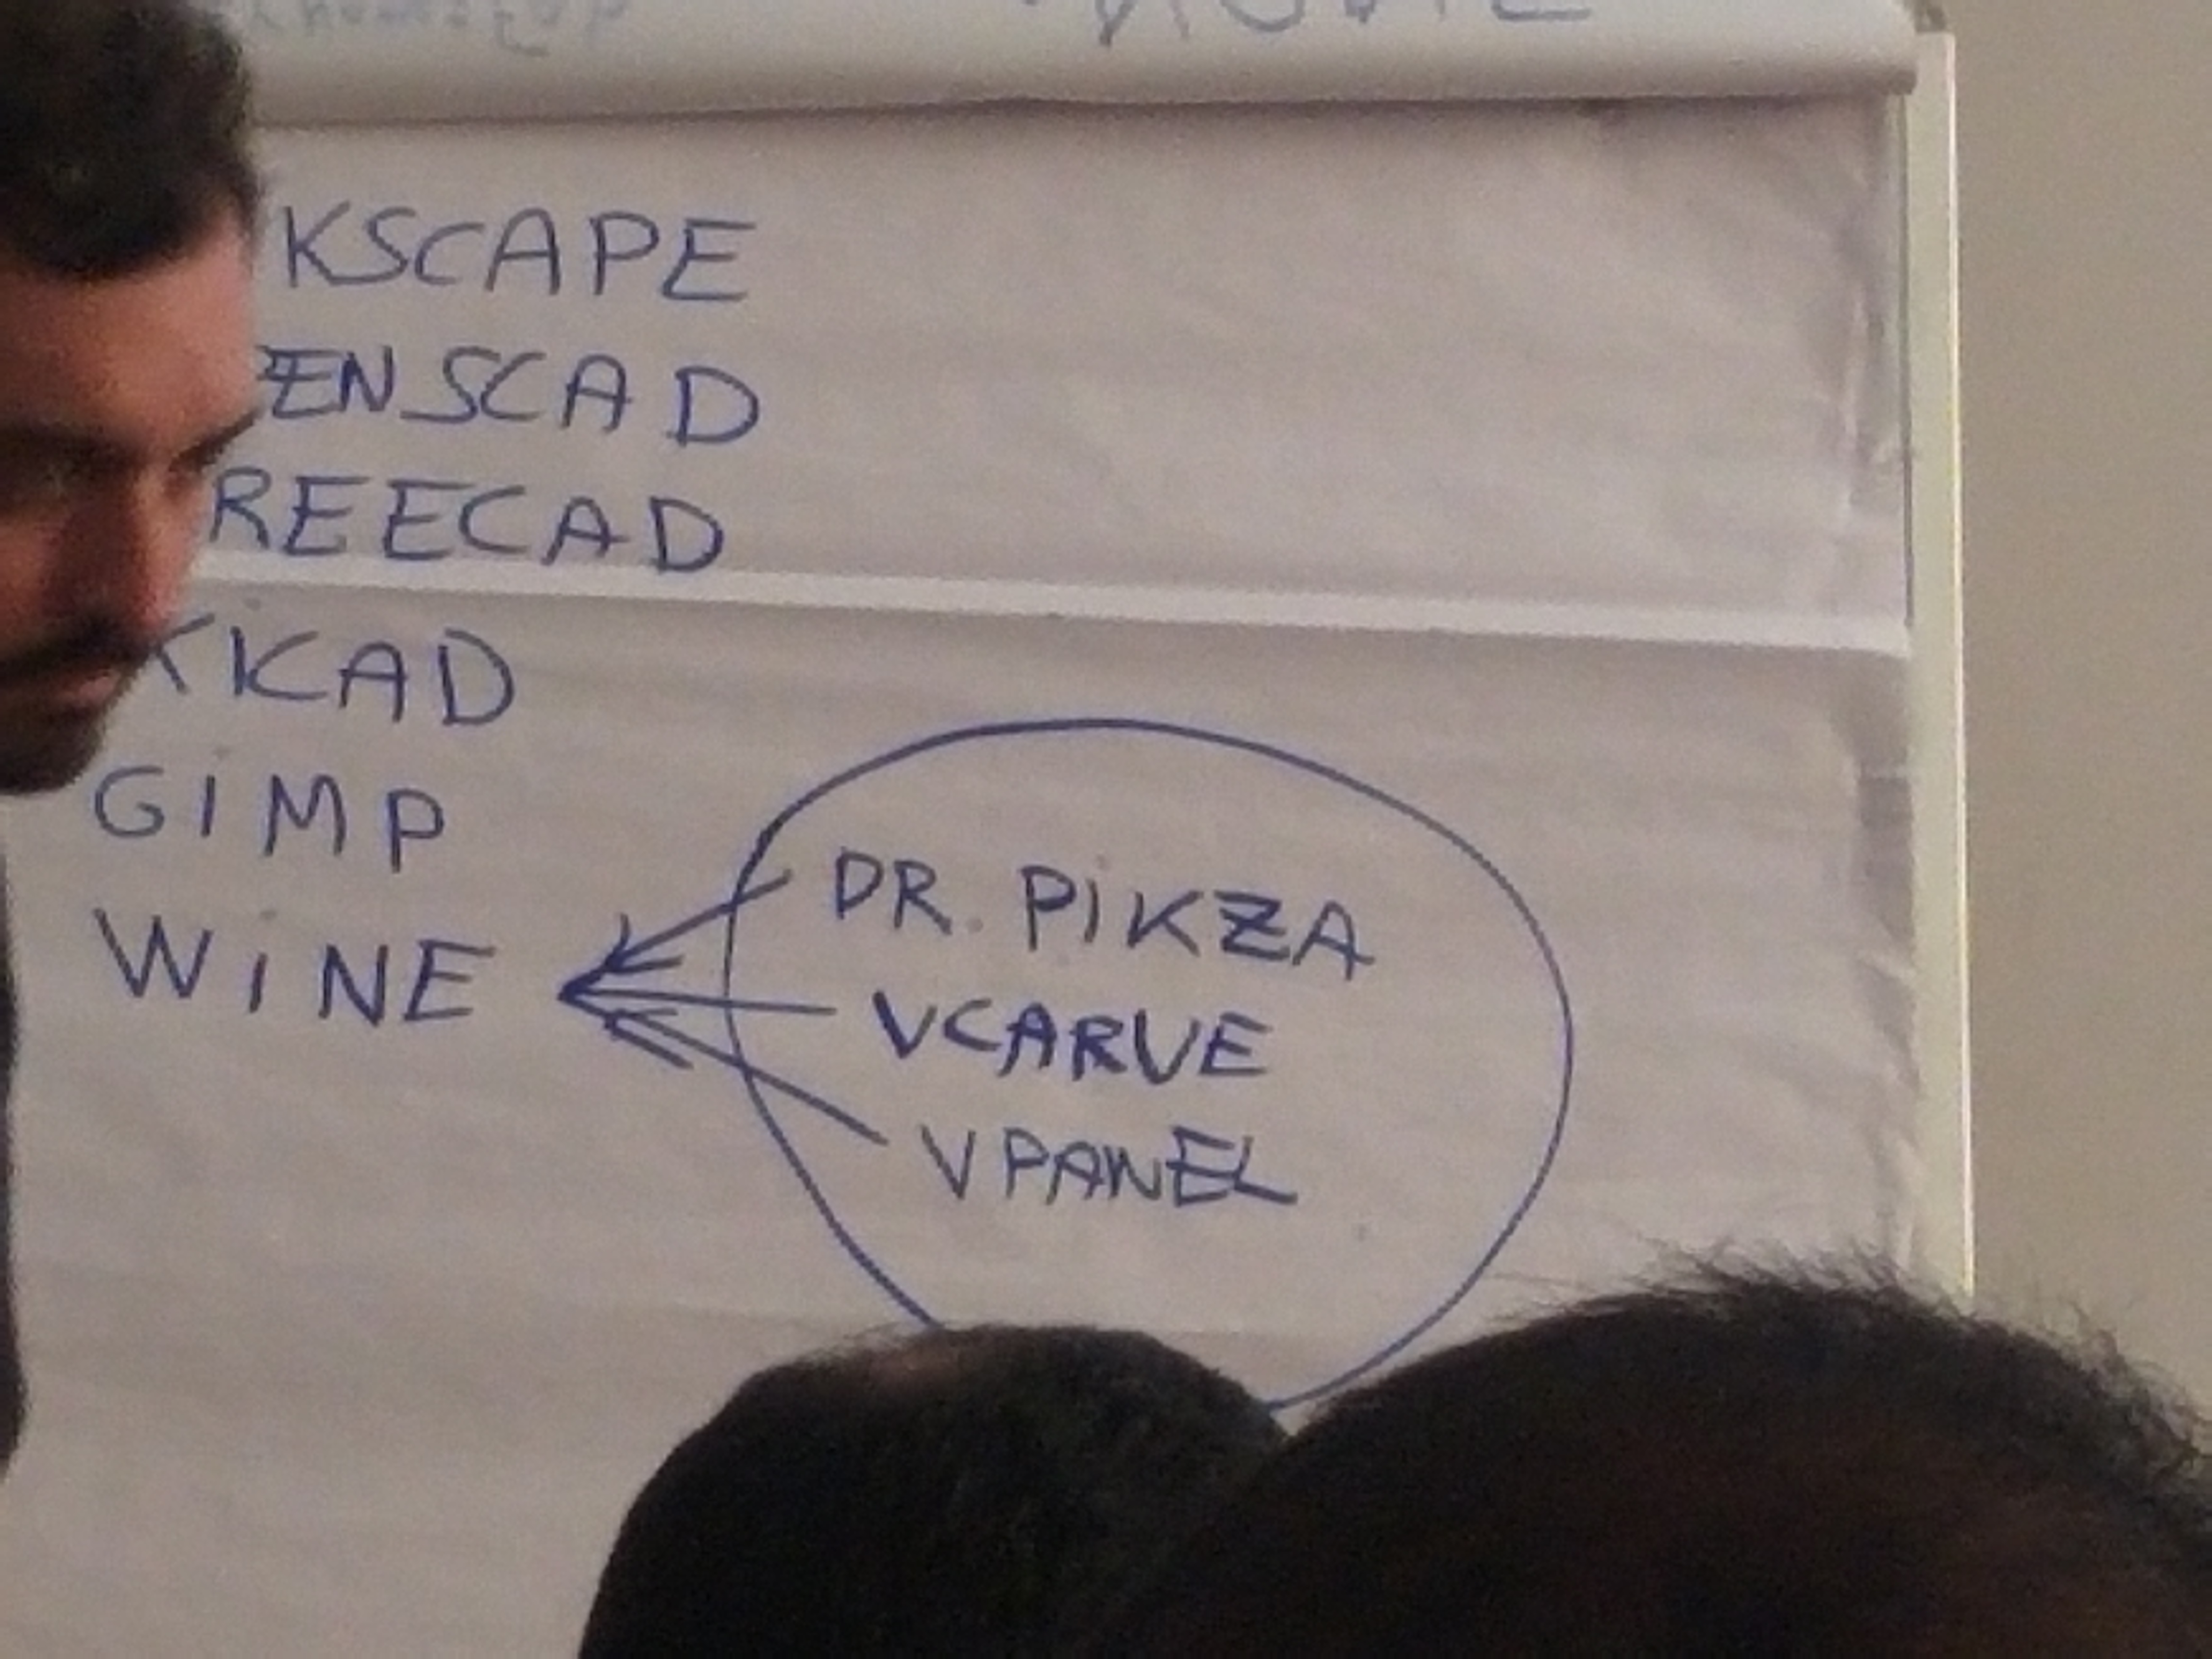 KSCAPE
ENSCAD
REECAD
KICAD
GiMP
WiNE
DR. PiKZA
VCARVE
VPANEL